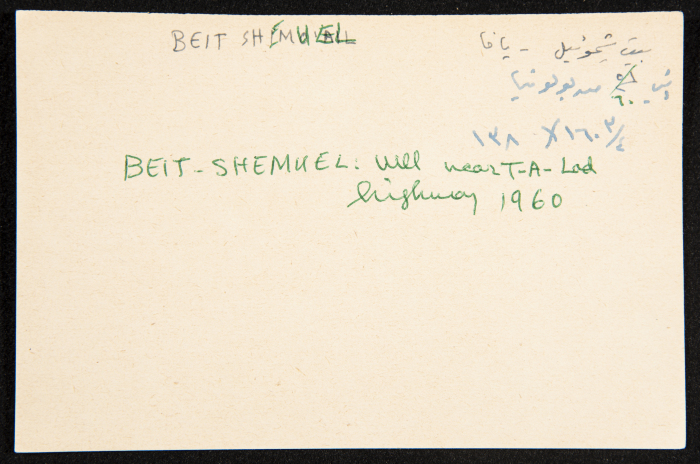 BEIT SHEMUEL
بيت شموئيل - يافا
من بولونيا
٦٠
١٣٨ X ١٦٠ ٣/٤
BEIT-SHEMUEL: Well near T-A-Lod
highway 1960